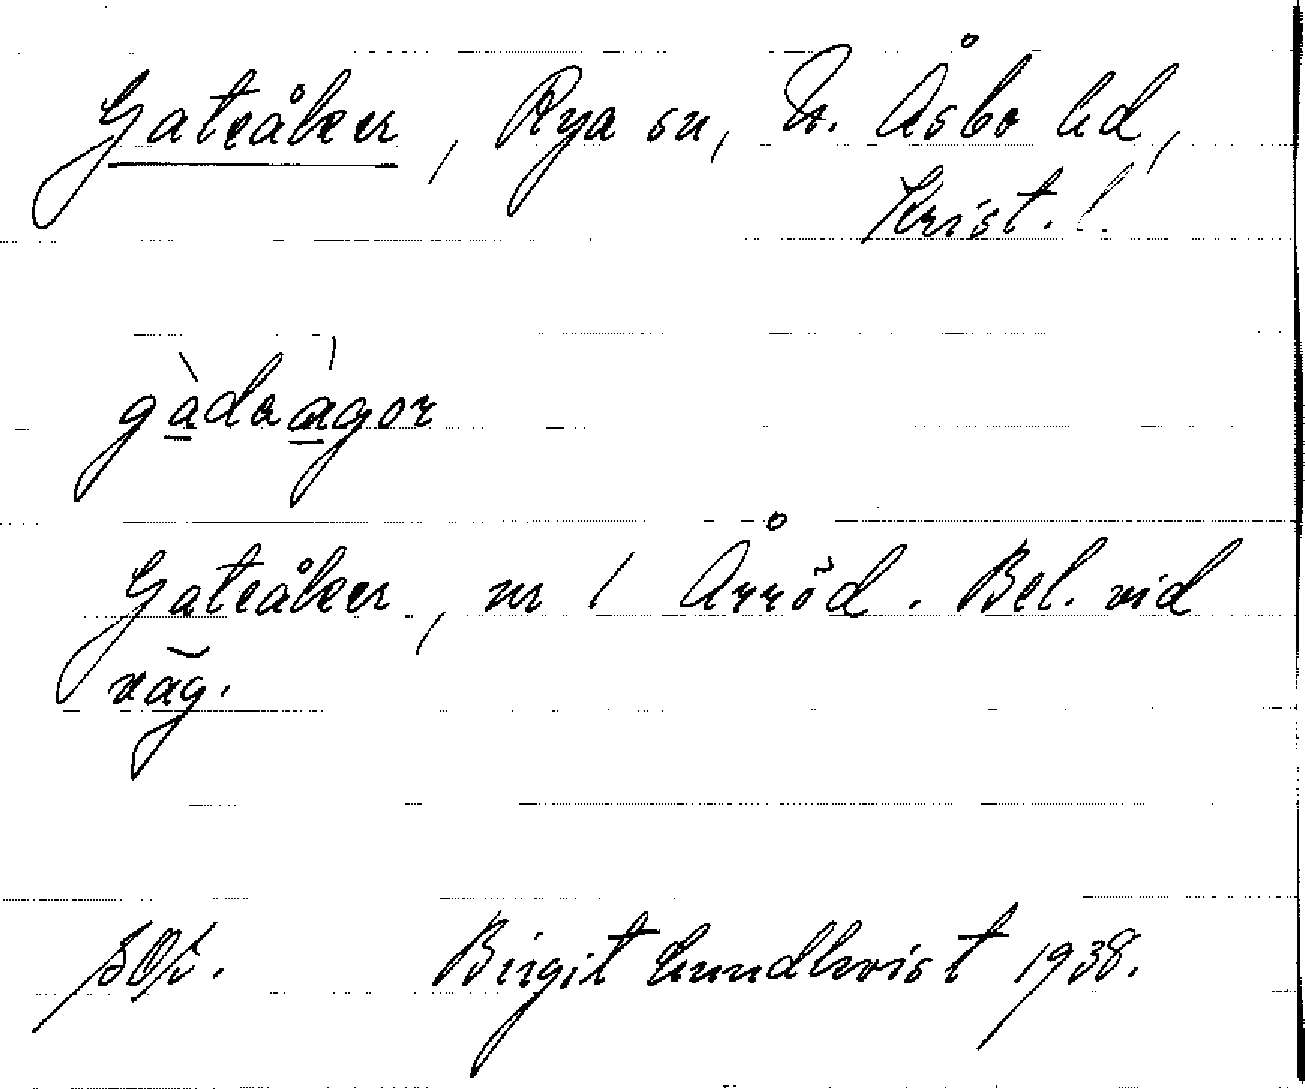 Gateåker, Rya sn, N. Åsbo hd,
Krist. l.
gàdaàgor
Gateåker, nr 1 Arröd. Bel. vid
väg.
Birgit Lundkvist 1938.